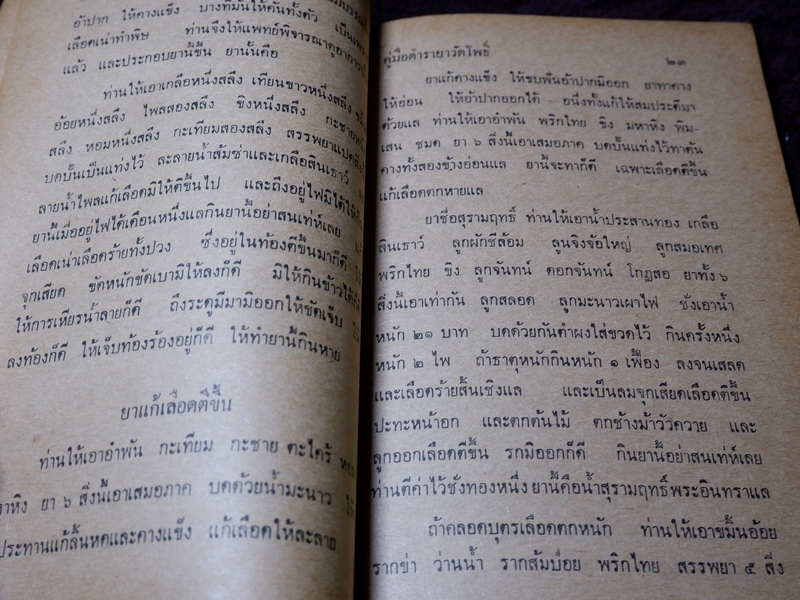 อ้าปาก ให้คางแข็ง บางทีมันให้คันทั้งตัว เป็นเพราะ
เลือดเน่าทำพิษ ท่านจึงให้แพทย์พิจารณาดูอาการ
แล้ว และประกอบยานี้ขึ้น ยานั้นคือ
ท่านให้เอาเกลือหนึ่งสลึง เทียนขาวหนึ่งสลึง
อ้อยหนึ่งสลึง ไพลสองสลึง ขิงหนึ่งสลึง กะชายหนึ่ง
สลึง หอมหนึ่งสลึง กะเทียมสองสลึง สรรพยาแปดสิ่งนี้
บดปั้นเป็นแท่งไว้ ละลายน้ำส้มซ่าและเกลือสินเธาว์
ลายน้ำไพลแก้เลือดมิให้ตีขึ้นไป และถึงอยู่ไฟมิได้ให้กิน
ยานี้เมื่ออยู่ไฟได้เดือนหนึ่งแลกินยานี้อย่าสนเท่ห์เลย
เลือดเน่าเลือดร้ายทั้งปวง ซึ่งอยู่ในท้องตีขึ้นมาก็ดี
จุกเสียด ขัดหนักขัดเบามิให้ลงก็ดี มิให้กินข้าวได้ก็ดี
ให้การเหียรน้ำลายก็ดี ถึงระดูมีมามิออกให้ขัดเจ็บ
ลงท้องก็ดี ให้เจ็บท้องร้องอยู่ก็ดี ให้ทำยานี้กินหาย
ยาแก้เลือดตีขึ้น
ท่านให้เอาอำพัน กะเทียม กะชาย ตะไคร้ หอม
มหาหิง ยา ๖ สิ่งนี้เอาเสมอภาค บดด้วยน้ำมะนาว
ประทานแก้ลิ้นหดและคางแข็ง แก้เลือดให้ละลาย
คู่มือตำรายาวัดโพธิ์ ๒๓
ยาแก้คางแข็ง ให้ขบฟันอ้าปากมิออก ยาทาคาง
ให้อ่อน ให้อ้าปากออกได้ อนึ่งทั้งแก้ให้สมประดีมา
ด้วยแล ท่านให้เอาอำพัน พริกไทย ขิง มหาหิง พิม-
เสน ชมด ยา ๖ สิ่งนี้เอาเสมอภาค บดปั้นแท่งไว้ทาต้น
คางทั้งสองข้างอ่อนแล ยานี้จะทาก็ดี เฉพาะเลือดตีขึ้น
แก้เลือดตกหายแล
ยาชื่อสุรามฤทธิ์ ท่านให้เอาน้ำประสานทอง เกลือ
สินเธาว์ ลูกผักชีล้อม ลูนจิงจ้อใหญ่ ลูกสมอเทศ
พริกไทย ขิง ลูกจันทน์ ดอกจันทน์ โกฏสอ ยาทั้ง ๖
สิ่งนี้เอาเท่ากัน ลูกสลอด ลูกมะนาวเผาไฟ ชั่งเอาน้ำ
หนัก ๒๑ บาท บดด้วยกันตำผงใส่ขวดไว้ กินครั้งหนึ่ง
หนัก ๒ ไพ ถ้าธาตุหนักกินหนัก ๑ เฟื้อง ลงจนเสลด
และเลือดร้ายสิ้นเชิงแล และเป็นลมจุกเสียดเลือดตีขึ้น
ปะทะหน้าอก และตกต้นไม้ ตกช้างม้าวัวควาย และ
ลูกออกเลือดตีขึ้น รกมิออกก็ดี กินยานี้อย่าสนเท่ห์เลย
ท่านตีค่าไว้ชั่งทองหนึ่ง ยานี้คือน้ำสุรามฤทธิ์พระอินทราแล
ถ้าคลอดบุตรเลือดตกหนัก ท่านให้เอาขมิ้นอ้อย
รากข่า ว่านน้ำ รากส้มป่อย พริกไทย สรรพยา ๕ สิ่ง